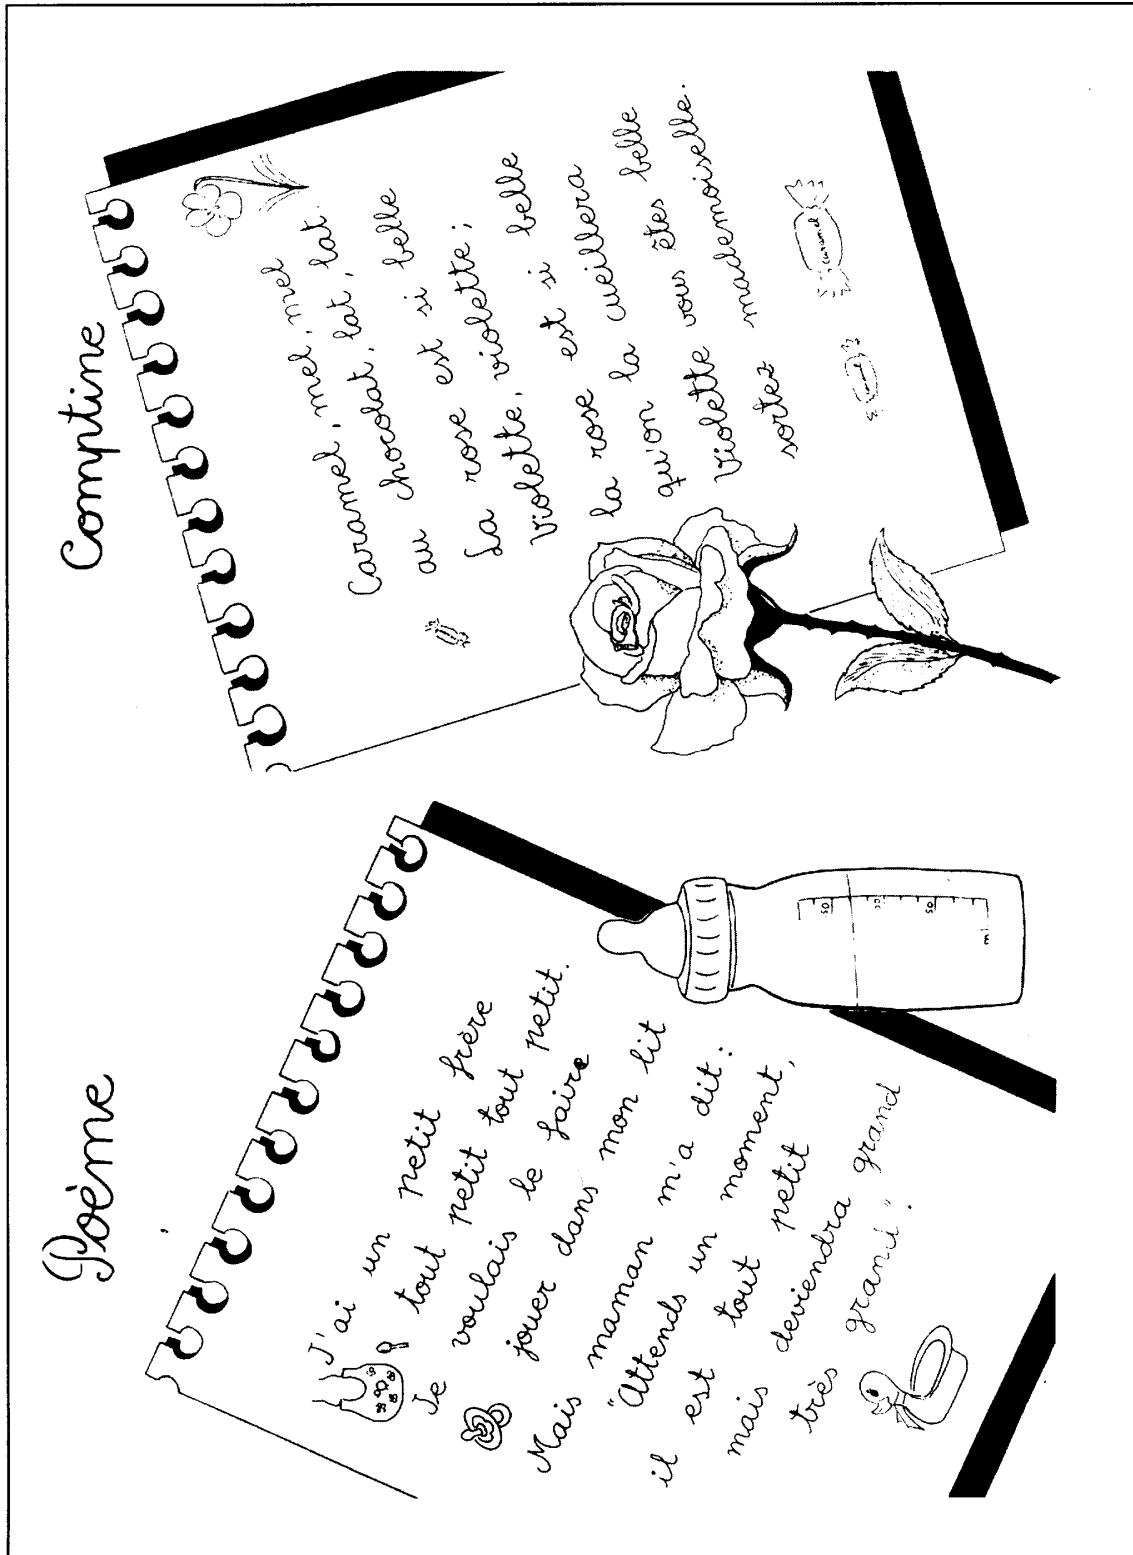 Poème
J'ai un petit frère
tout petit tout petit.
Je voulais le faire
jouer dans mon lit
Mais maman m'a dit :
"Attends un moment,
il est tout petit
mais deviendra grand
très grand".
ml
Comptine
Caramel, mel, mel, mel
au chocolat, lat, lat, lat.
La rose est si belle
violette, violette ;
violette est si belle
la rose la cueillera
qu'on la vous êtes belle
violette mademoiselle.
sortez
caramel
caramel